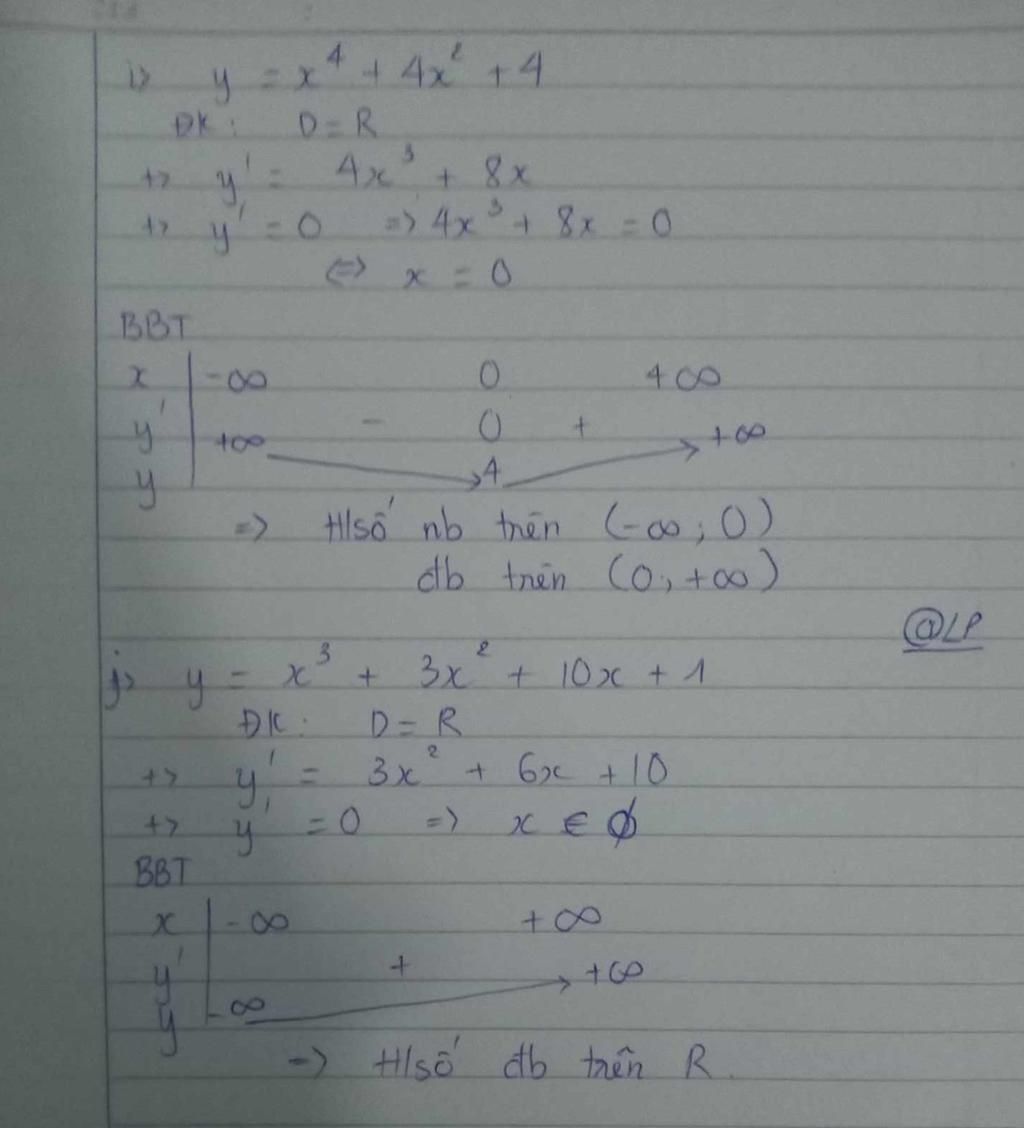 i> y = x⁴ + 4x² + 4
ĐK : D = R
+> y' = 4x³ + 8x
+> y' = 0 => 4x³ + 8x = 0
<=> x = 0
BBT
x | -∞ 0 +∞
y' | - 0 +
y | +∞ 4 +∞
=> H/số nb trên (-∞; 0)
đb trên (0; +∞)
@LP
j> y = x³ + 3x² + 10x + 1
ĐK : D = R
+> y' = 3x² + 6x + 10
+> y' = 0 => x ∈ ∅
BBT
x | -∞ +∞
y' | +
y | -∞ +∞
=> H/số đb trên R.